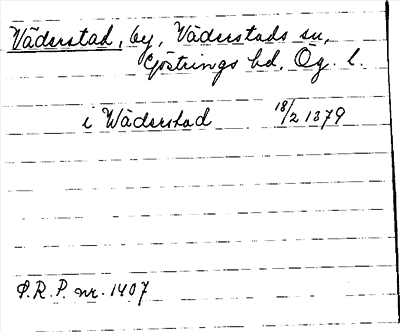 Väderstad, by, Väderstads sn,
Göstrings hd, Ög. l.
i Wäderstad 18/2 1379
S.R.P. nr. 1407